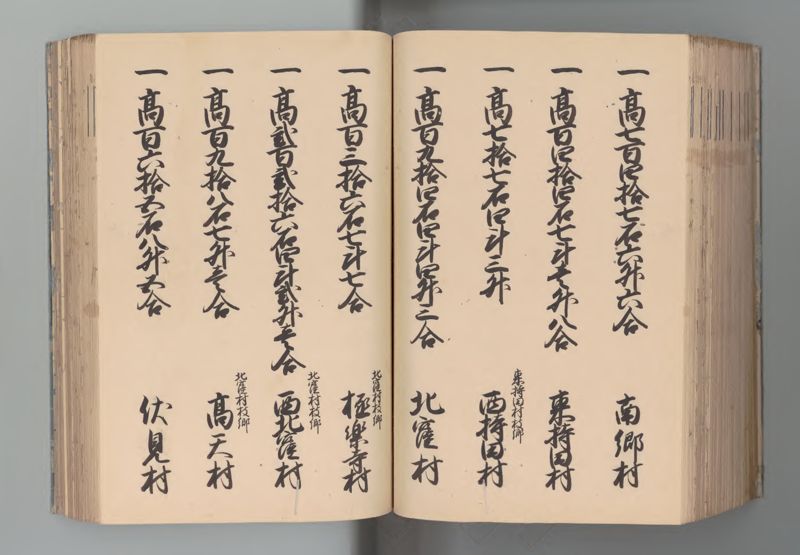 一 高七百四拾七石六升六合 南郷村
一 高百四拾四石七斗壱升八合 東持田村
一 高七拾七石四斗三升 東持田村枝郷 西持田村
一 高百九拾四石四斗四升二合 北窪村
一 高百三拾六石七斗七合 北窪村枝郷 極楽寺村
一 高弐百弐拾六石四斗弐升壱合 北窪村枝郷 西北窪村
一 高百九拾八石七升壱合 北窪村枝郷 高天村
一 高百六拾五石八升五合 伏見村